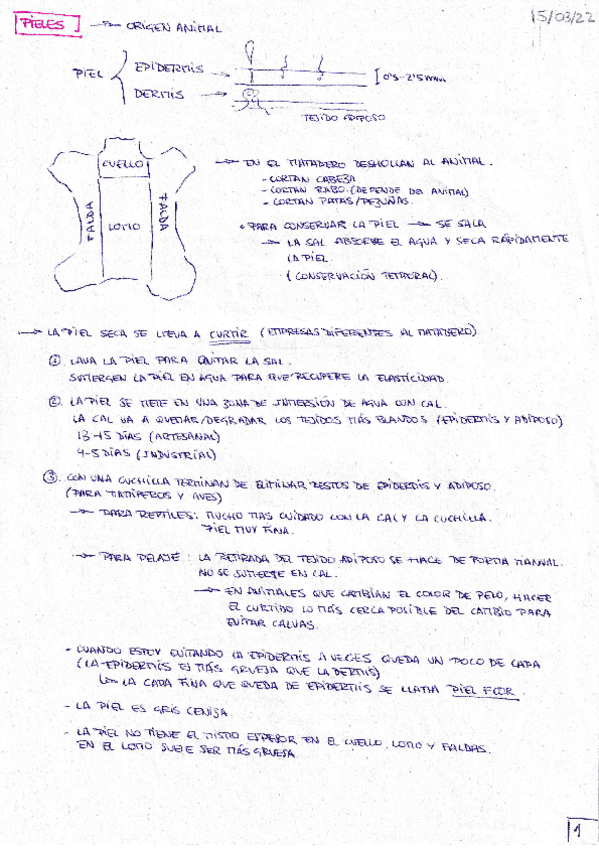 PIELES → ORIGEN ANIMAL
15/03/22
PIEL
EPIDERMIS →
DERMIS →
0'5-2'5mm
TEJIDO ADIPOSO
CUELLO
FALDA
LOMO
FALDA
→ EN EL MATADERO DESHOLLAN AL ANIMAL.
- CORTAN CABEZA
- CORTAN RABO (DEPENDE DEL ANIMAL)
- CORTAN PATAS/PEZUÑAS.
• PARA CONSERVAR LA PIEL → SE SALA
→ LA SAL ABSORBE EL AGUA Y SECA RÁPIDAMENTE
LA PIEL
(CONSERVACIÓN TEMPORAL).
→ LA PIEL SECA SE LLEVA A CURTIR (EMPRESAS DIFERENTES AL MATADERO)
① LAVA LA PIEL PARA QUITAR LA SAL.
SUMERGEN LA PIEL EN AGUA PARA QUE RECUPERE LA ELASTICIDAD.
② LA PIEL SE METE EN UNA ZONA DE INMERSIÓN DE AGUA CON CAL.
LA CAL VA A QUEMAR/DEGRADAR LOS TEJIDOS MÁS BLANDOS (EPIDERMIS Y ADIPOSO)
13-15 DÍAS (ARTESANAL)
4-5 DÍAS (INDUSTRIAL)
③ CON UNA CUCHILLA TERMINAN DE ELIMINAR RESTOS DE EPIDERMIS Y ADIPOSO.
(PARA MAMÍFEROS Y AVES)
→ PARA REPTILES: MUCHO MAS CUIDADO CON LA CAL Y LA CUCHILLA.
PIEL MUY FINA.
→ PARA PELAJE: LA RETIRADA DEL TEJIDO ADIPOSO SE HACE DE FORMA MANUAL.
NO SE SUMERGE EN CAL.
→ EN ANIMALES QUE CAMBIAN EL COLOR DE PELO, HACER
EL CURTIDO LO MÁS CERCA POSIBLE DEL CAMBIO PARA
EVITAR CALVAS.
- CUANDO ESTOY QUITANDO LA EPIDERMIS A VECES QUEDA UN POCO DE CAPA
(LA EPIDERMIS ES MÁS GRUESA QUE LA DERMIS)
↳ LA CAPA FINA QUE QUEDA DE EPIDERMIS SE LLAMA PIEL FLOR.
- LA PIEL ES GRIS CENIZA.
- LA PIEL NO TIENE EL MISMO ESPESOR EN EL CUELLO, LOMO Y FALDAS.
EN EL LOMO SUELE SER MÁS GRUESA.
1